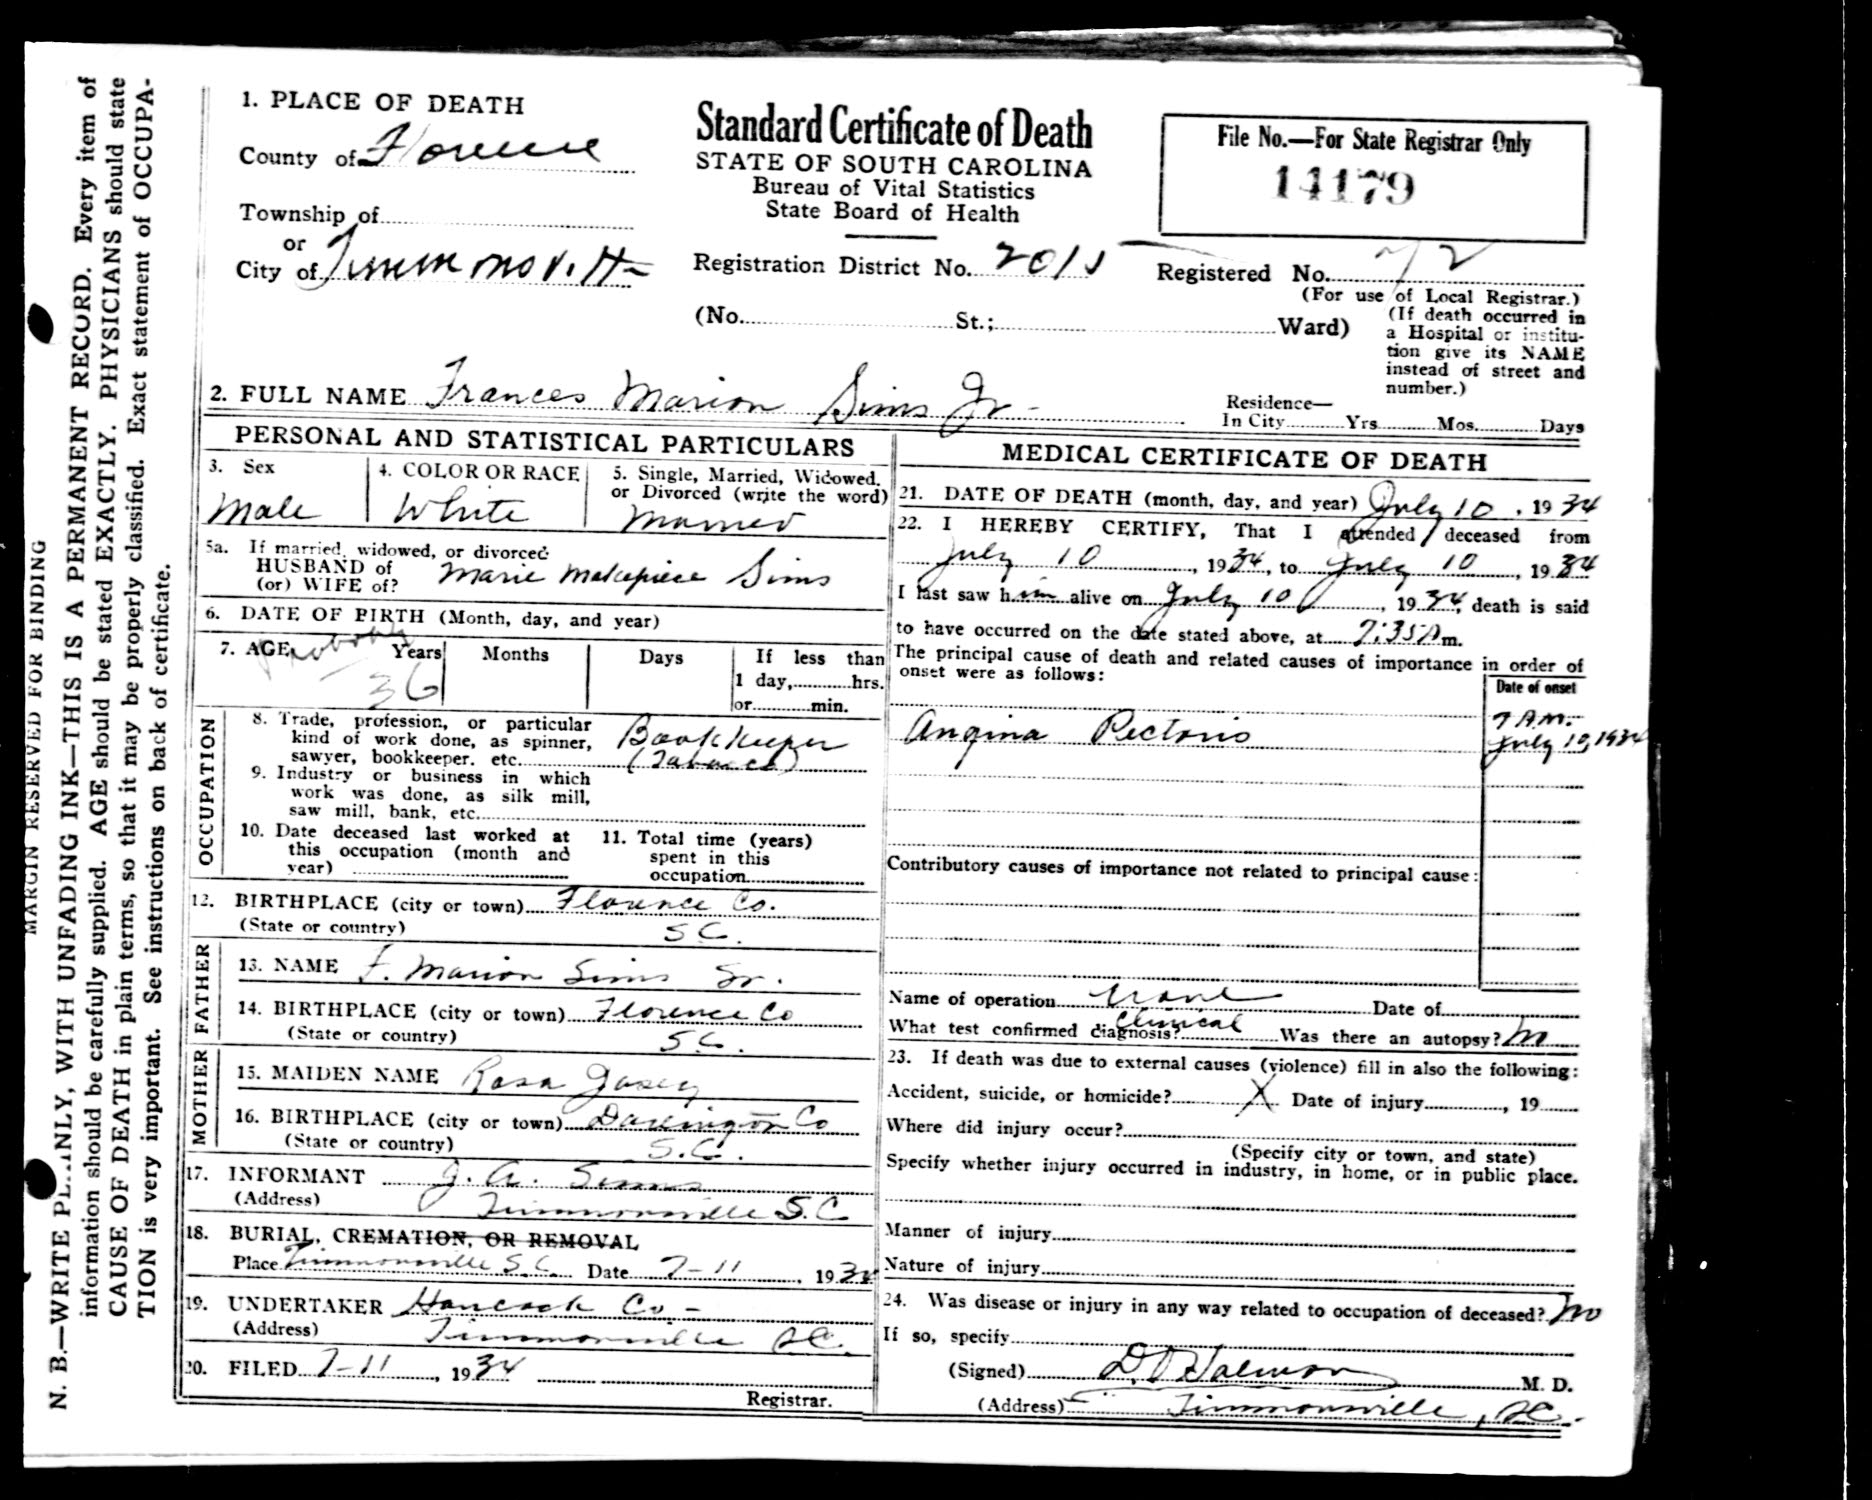 N. B.—WRITE PLAINLY, WITH UNFADING INK—THIS IS A PERMANENT RECORD. Every item of
information should be carefully supplied. AGE should be stated EXACTLY. PHYSICIANS should state
CAUSE OF DEATH in plain terms, so that it may be properly classified. Exact statement of OCCUPA-
TION is very important. See instructions on back of certificate.
MARGIN RESERVED FOR BINDING
1. PLACE OF DEATH
County of Florence
Township of
or
City of Timmonsville
Standard Certificate of Death
STATE OF SOUTH CAROLINA
Bureau of Vital Statistics
State Board of Health
File No.—For State Registrar Only
14179
Registration District No. 2015
Registered No. 72
(For use of Local Registrar.)
(No. St.; Ward)
(If death occurred in
a Hospital or institu-
tion give its NAME
instead of street and
number.)
2. FULL NAME Frances Marion Sims Jr
Residence—
In City Yrs. Mos. Days
PERSONAL AND STATISTICAL PARTICULARS
3. Sex
Male
4. COLOR OR RACE
White
5. Single, Married, Widowed,
or Divorced (write the word)
Married
5a. If married, widowed, or divorced
HUSBAND of
(or) WIFE of? Marie Makepiece Sims
6. DATE OF BIRTH (Month, day, and year)
7. AGE Probably Years Months Days
36
If less than
1 day, hrs.
or min.
OCCUPATION
8. Trade, profession, or particular
kind of work done, as spinner,
sawyer, bookkeeper. etc. Bookkeeper
(Tobacco)
9. Industry or business in which
work was done, as silk mill,
saw mill, bank, etc.
10. Date deceased last worked at
this occupation (month and
year)
11. Total time (years)
spent in this
occupation
12. BIRTHPLACE (city or town) Florence Co.
(State or country) S C.
FATHER
13. NAME F. Marion Sims Sr.
14. BIRTHPLACE (city or town) Florence Co
(State or country) S.C.
MOTHER
15. MAIDEN NAME Rosa
16. BIRTHPLACE (city or town) Darlington Co
(State or country) S.C.
17. INFORMANT J. A. Simms
(Address) Timmonsville S.C
18. BURIAL, CREMATION, OR REMOVAL
Place Timmonsville S.C. Date 7-11, 1934
19. UNDERTAKER Hancock Co -
(Address) Timmonsville SC.
20. FILED 7-11, 1934
Registrar.
MEDICAL CERTIFICATE OF DEATH
21. DATE OF DEATH (month, day, and year) July 10, 1934
22. I HEREBY CERTIFY, That I attended deceased from
July 10, 1934, to July 10, 1934
I last saw him alive on July 10, 1934, death is said
to have occurred on the date stated above, at 7:35 A m.
The principal cause of death and related causes of importance in order of
onset were as follows:
Date of onset
Angina Pectoris
7 A.M.
July 10, 1934
Contributory causes of importance not related to principal cause:
Name of operation none Date of
What test confirmed diagnosis? Clinical Was there an autopsy? no
23. If death was due to external causes (violence) fill in also the following:
Accident, suicide, or homicide? X Date of injury , 19
Where did injury occur?
(Specify city or town, and state)
Specify whether injury occurred in industry, in home, or in public place.
Manner of injury
Nature of injury
24. Was disease or injury in any way related to occupation of deceased? no
If so, specify
(Signed) M. D.
(Address) Timmonsville, SC.